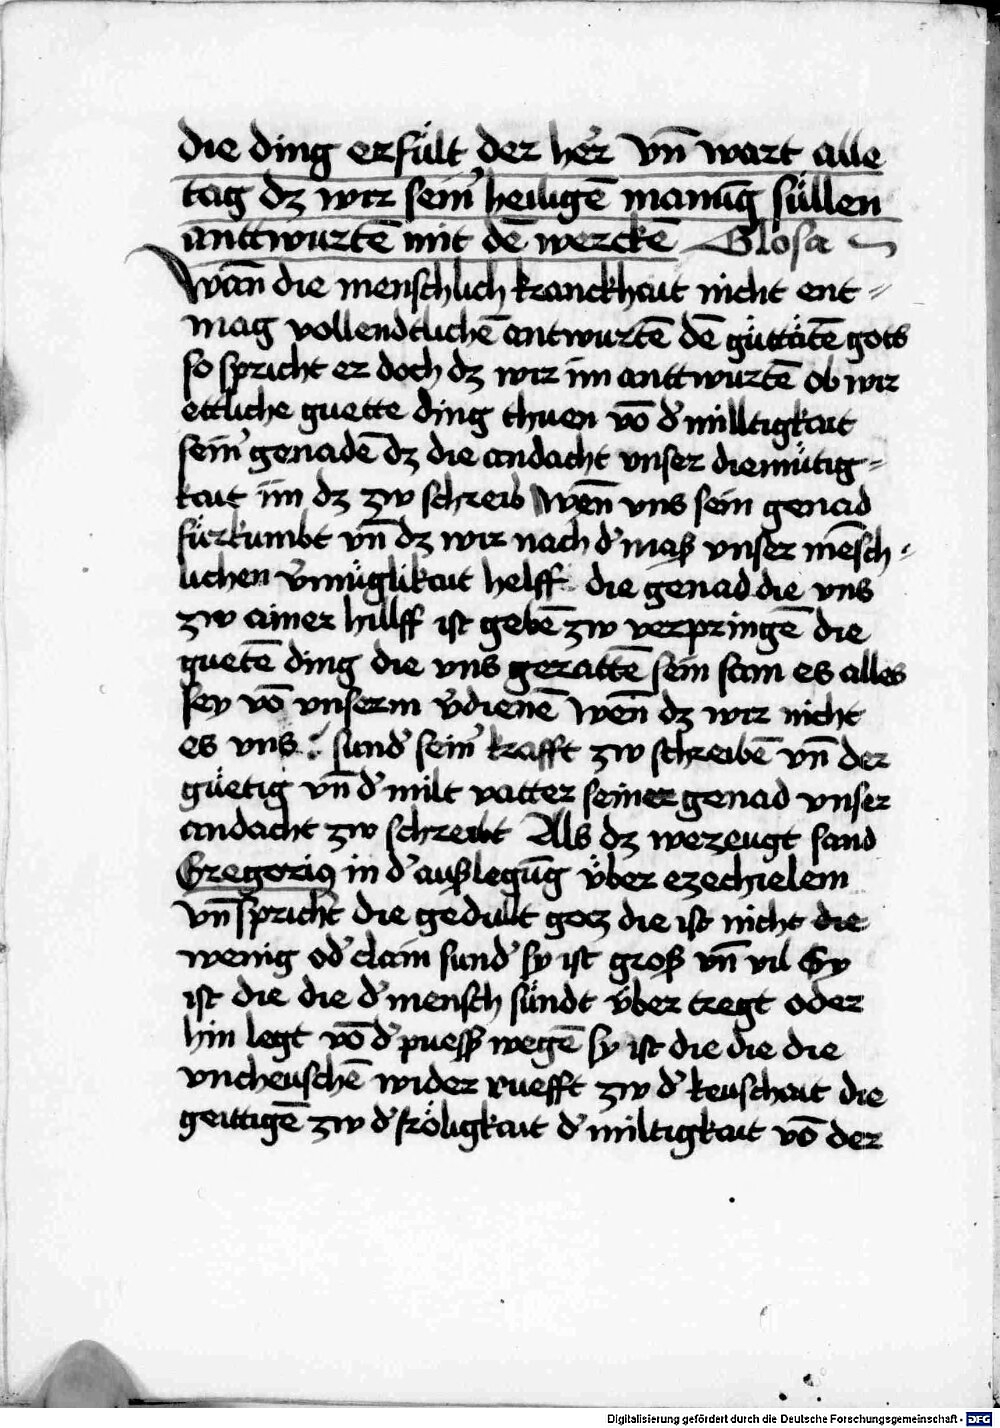 die ding erfült der her̄ vn̄ wart alle
tag dz wir sein̾ heiligē manūg süllen
anttwurtē mit dē werckē Glosa
Wan̄ die menschlich kranckhait nicht ent=
mag vollendtlichē antwurtē dē güttätē gots
so spricht er doch dz wir im anttwurtē ob wir
ettliche guette ding thuen vō d̾ milltigkait
sein̾ genadē dz die andacht vnser diemütig=
kait im dz zw schreib Wen̄ vns sein genad
fürkumbt vn̄ dz wir nach d̾ maß vnser mēsch=
lichen v̾müglikait helff die genad die vns
zw ainer hillff ist gebē zw verpringē die
guetē ding die vns gerattē sein sam es alles
sey vō vnserm v̾dienē Wen̄ dz wir nicht
es vns sund̾ sein̾ krafft zw schreibē vn̄ der
güetig vn̄ d̾ milt vatter seiner genad vnser
andacht zw schreibt Als dz wezeugt sand
Gregoriꝯ in d̾ außlegūg über ezechielem
vn̄ spricht die gedullt gotz die ist nicht die
wenig od̾ clain sund̾ sy ist groß vn̄ vil Sy
ist die die d̾ mensch sündt über tregt oder
hin legt vō d̾ puesß wegē sy ist die die die
vncheuschē wider ruefft zw d̾ keuschait die
geittigē zw d̾ fröligkait d̾ miltigkait vō der
Digitalisierung gefördert durch die Deutsche Forschungsgemeinschaft - DFG